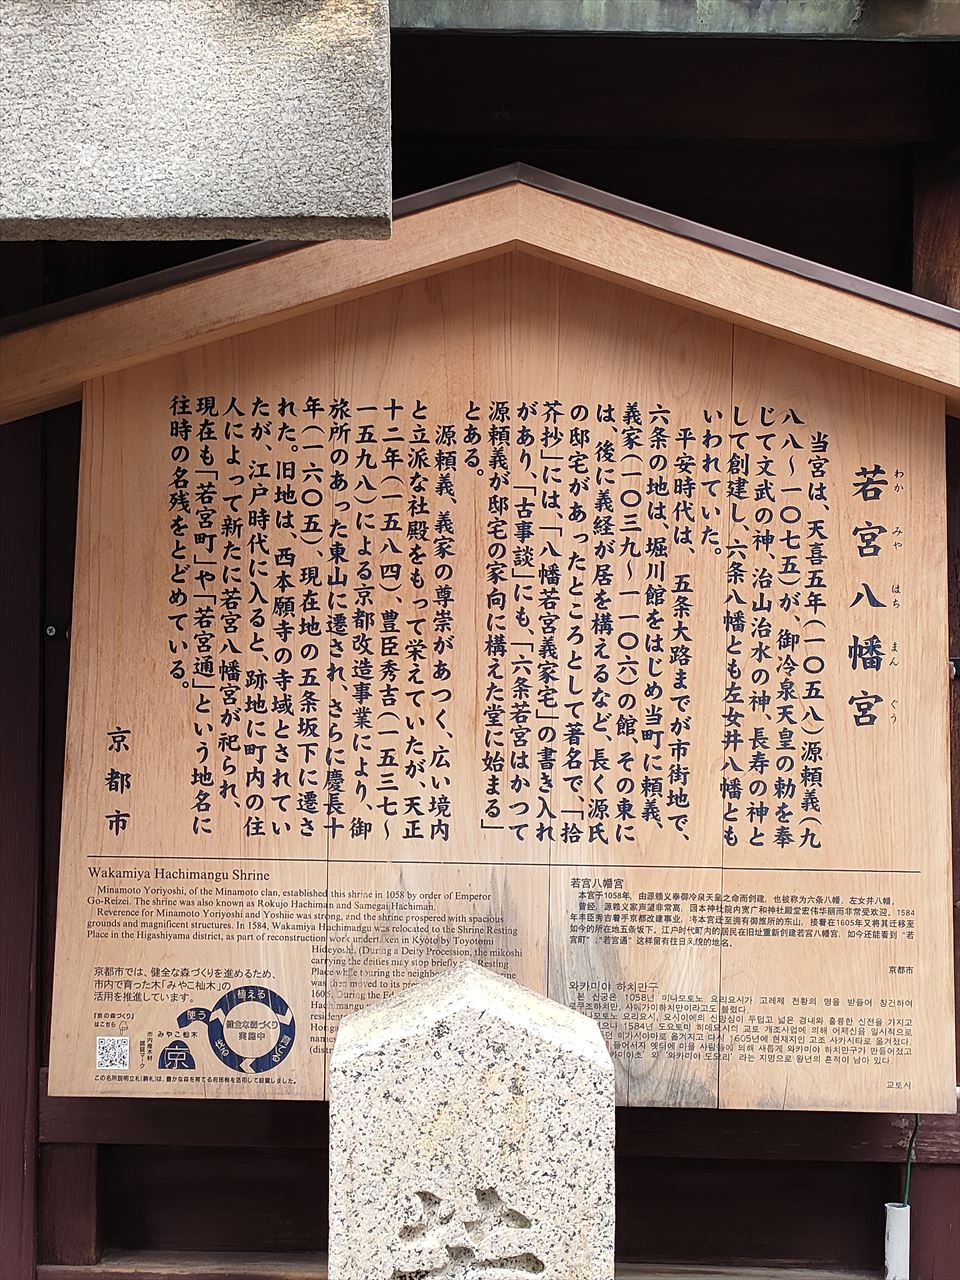 若宮八幡宮
わか みや はち まん ぐう
当宮は、天喜五年(一〇五八)源頼義(九
八八～一〇七五)が、御冷泉天皇の勅を奉
じて文武の神、治山治水の神、長寿の神と
して創建し、六条八幡とも左女井八幡とも
いわれていた。
平安時代は、五条大路までが市街地で、
六条の地は、堀川館をはじめ当町に頼義、
義家(一〇三九～一一〇六)の館、その東に
は、後に義経が居を構えるなど、長く源氏
の邸宅があったところとして著名で、「拾
芥抄」には、「八幡若宮義家宅」の書き入れ
があり、「古事談」にも、「六条若宮はかつて
源頼義が邸宅の家向に構えた堂に始まる」
とある。
源頼義、義家の尊崇があつく、広い境内
と立派な社殿をもって栄えていたが、天正
十二年(一五八四)、豊臣秀吉(一五三七～
一五九八)による京都改造事業により、御
旅所のあった東山に遷され、さらに慶長十
年(一六〇五)、現在地の五条坂下に遷さ
れた。旧地は、西本願寺の寺域とされてい
たが、江戸時代に入ると、跡地に町内の住
人によって新たに若宮八幡宮が祀られ、
現在も「若宮町」や「若宮通」という地名に
往時の名残をとどめている。
京都市
Wakamiya Hachimangu Shrine
Minamoto Yoriyoshi, of the Minamoto clan, established this shrine in 1058 by order of Emperor
Go-Reizei. The shrine was also known as Rokujo Hachiman and Samegai Hachimah.
Reverence for Minamoto Yoriyoshi and Yoshiie was strong, and the shrine prospered with spacious
grounds and magnificent structures. In 1584, Wakamiya Hachimangu was relocated to the Shrine Resting
Place in the Higashiyama district, as part of reconstruction work undertaken in Kyoto by Toyotomi
Hideyoshi. (During a Deity Procession, the mikoshi
carrying the deities may stop briefly Resting
Place while touring the neighb
was then moved to its pre
1605. During the E
Hachimangu
reside
Hon
name
(distr
若宮八幡宮
本宮于1058年，由源赖义奉御冷泉天皇之命而创建，也被称为六条八幡、左女井八幡，
曾经，源赖义家声望非常高，因本神社院内宽广和神社殿堂宏伟华丽而非常受欢迎，1584
年丰臣秀吉着手京都改建事业，将本宫迁至拥有御旅所的东山，接着在1605年又将其迁移至
如今的所在地五条坂下，江户时代町内的居民在旧址重新创建若宫八幡宫，如今还能看到“若
宫町”、“若宫通”这样留有往日风貌的地名。
京都市
와카미야 하치만구
본 신궁은 1058년 미나모토노 요리요시가 고레제 천황의 명을 받들어 창건하여
로쿠조하치만, 사메가이하치만이라고도 불렸다.
노 요리요시, 요시이에의 신앙심이 두텁고 넓은 경내와 훌륭한 신전을 가지고
으나 1584년 도요토미 히데요시의 교토 개조사업에 의해 어제신을 일시적으로
던 히가시야마로 옮겨지고 다시 1605년에 현재지인 고조 사카시타로 옮겨졌다.
들어서자 옛터에 마을 사람들에 의해 새롭게 와카미야 하치만구가 만들어졌고
미야초’ 와 ‘와카미야 도오리’ 라는 지명으로 왕년의 흔적이 남아 있다.
교토시
京都市では、健全な森づくりを進めるため、
市内で育った木「みやこ杣木」の
活用を推進しています。
「京の森づくり」
はこちら
市内産木材
認証マーク
みやこ杣木
京
植える
使う
育てる
伐る
健全な森づくり
実施中
この名所説明立札(駒札)は、豊かな森を育てる府民税を活用して設置しました。
若